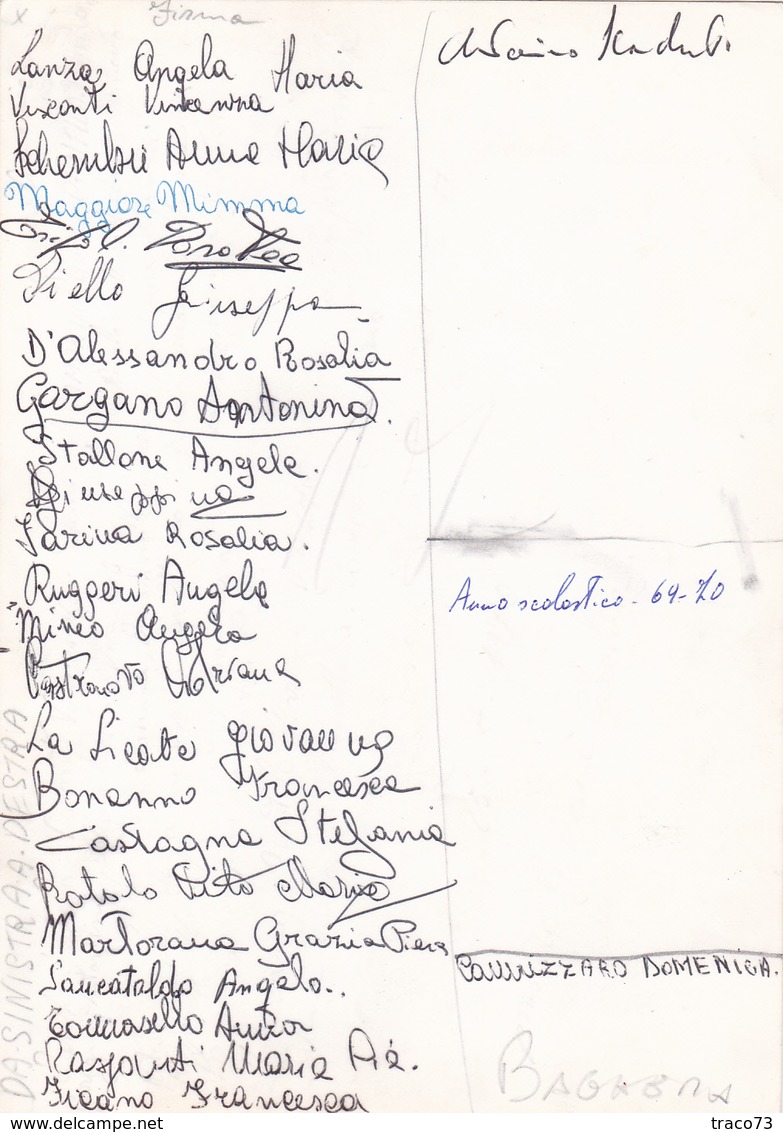 Firma
Lanza Angela Maria
Visconti Vincenza
Schembri Anna Maria
Maggiore Mimma
Aiello Giuseppa
D'Alessandro Rosalia
Gargano Antonina
Stallone Angela.
Giuseppina
Farina Rosalia.
Ruggeri Angela
Mineo Angela
Castronovo Adriana
La Licata Giovanna
Bonanno Francesca
Castagna Stefania
Rotolo Vito Maria
Martorana Grazia Piera
Sancataldo Angelo..
Tomasello Anton
Raspanti Maria Pia.
Ficano Francesca
DA SINISTRA A DESTRA
Anno scolastico - 69-70
CANNIZZARO DOMENICA.
BAGHERIA
traco73